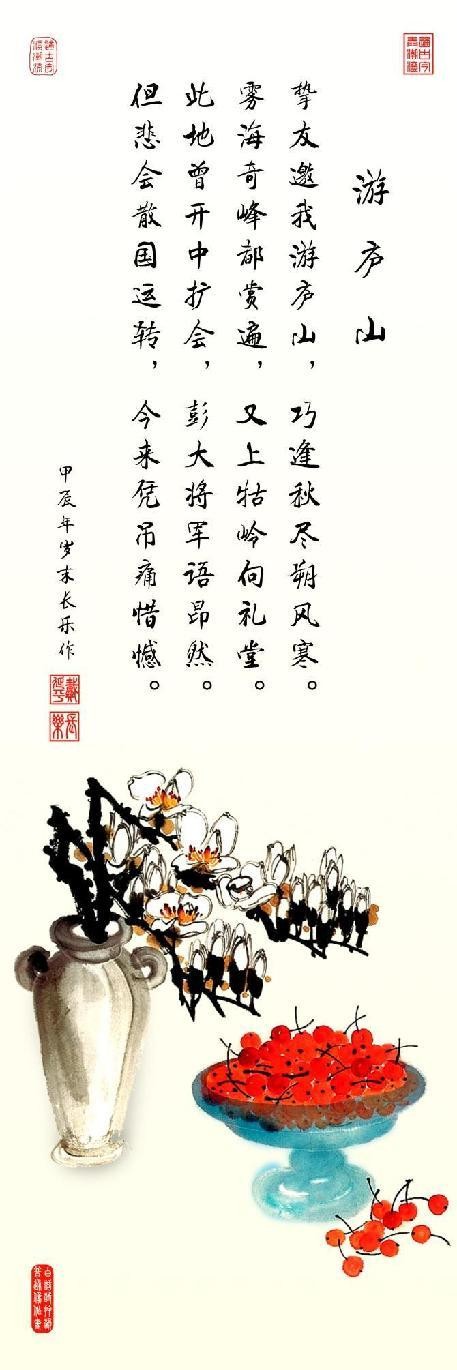 游庐山
挚友邀我游庐山，巧逢秋尽朔风寒。
雾海奇峰都赏遍，又上牯岭向礼堂。
此地曾开中扩会，彭大将军语昂然。
但悲会散国运转，今来凭吊痛惜憾。
甲辰年岁末长乐作